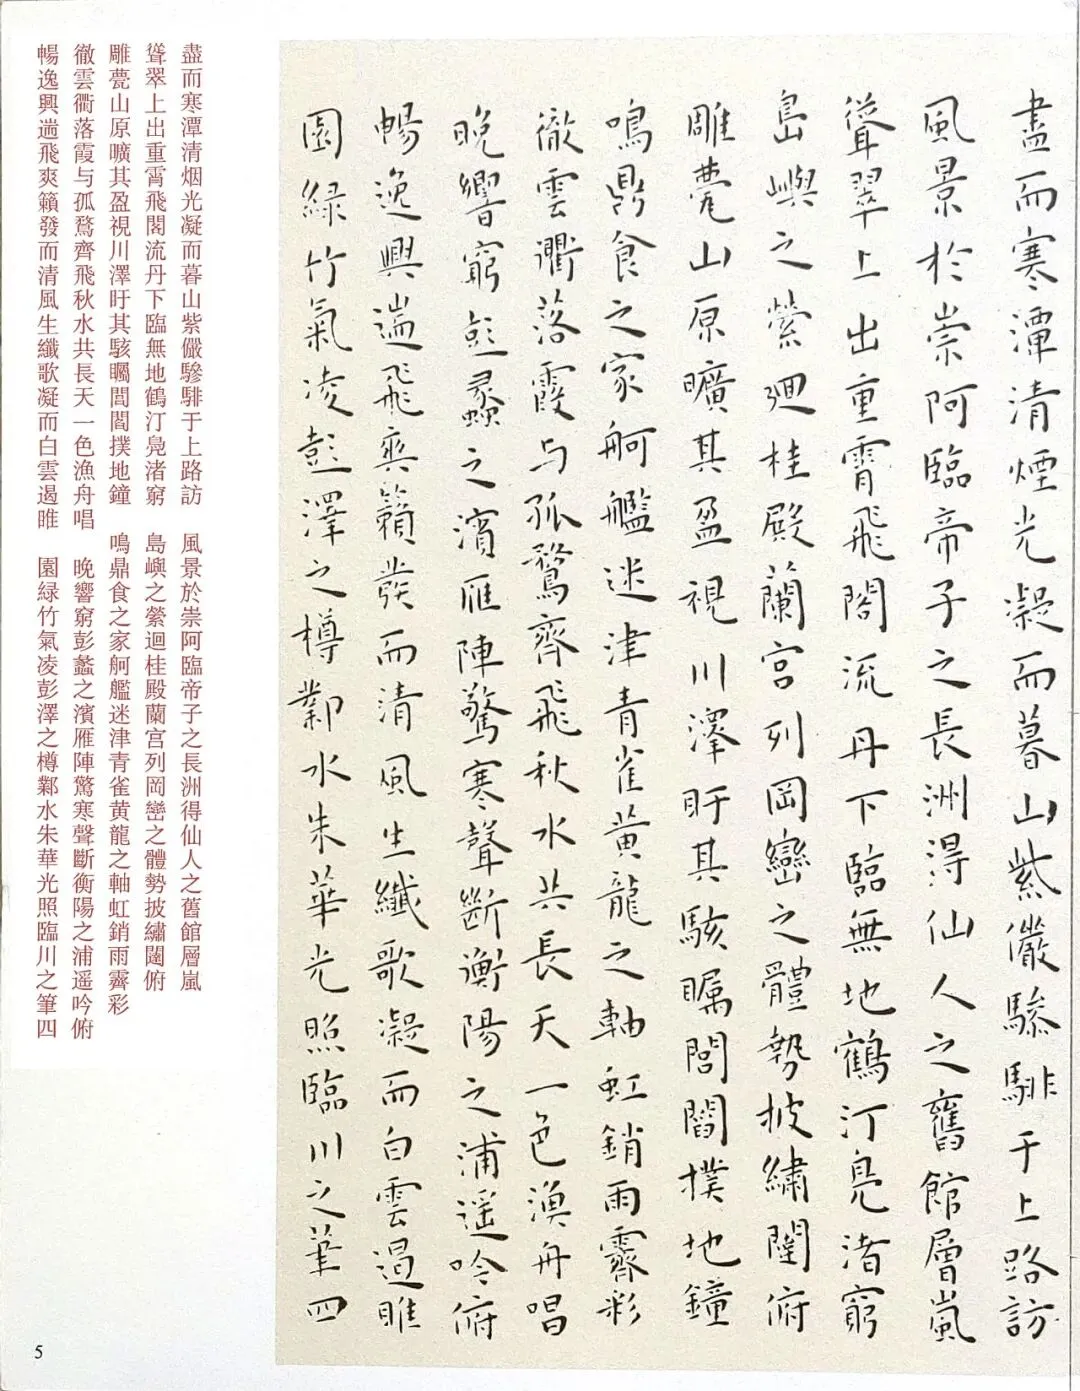 盡而寒潭清煙光凝而暮山紫儼驂騑于上路訪
風景於崇阿臨帝子之長洲得仙人之舊館層嵐
聳翠上出重霄飛閣流丹下臨無地鶴汀鳧渚窮
島嶼之縈迴桂殿蘭宮列岡巒之體勢披繡闥俯
雕甍山原曠其盈視川澤盱其駭矚閭閻撲地鐘
鳴鼎食之家舸艦迷津青雀黃龍之軸虹銷雨霽彩
徹雲衢落霞与孤鶩齊飛秋水共長天一色漁舟唱
晚響窮彭蠡之濱雁陣驚寒聲斷衡陽之浦遥吟俯
暢逸興遄飛爽籟發而清風生纖歌凝而白雲遏睢
園綠竹氣凌彭澤之樽鄴水朱華光照臨川之筆四
盡而寒潭清烟光凝而暮山紫儼驂騑于上路訪　風景於崇阿臨帝子之長洲得仙人之舊館層嵐
聳翠上出重霄飛閣流丹下臨無地鶴汀鳧渚窮　島嶼之縈迴桂殿蘭宫列岡巒之體勢披繡闥俯
雕甍山原曠其盈視川澤盱其駭矚閭閻撲地鐘　鳴鼎食之家舸艦迷津青雀黄龍之軸虹銷雨霽彩
徹雲衢落霞与孤鶩齊飛秋水共長天一色漁舟唱　晚響窮彭蠡之濱雁陣驚寒聲斷衡陽之浦遥吟俯
暢逸興遄飛爽籟發而清風生纖歌凝而白雲遏睢　園緑竹氣凌彭澤之樽鄴水朱華光照臨川之筆四
5